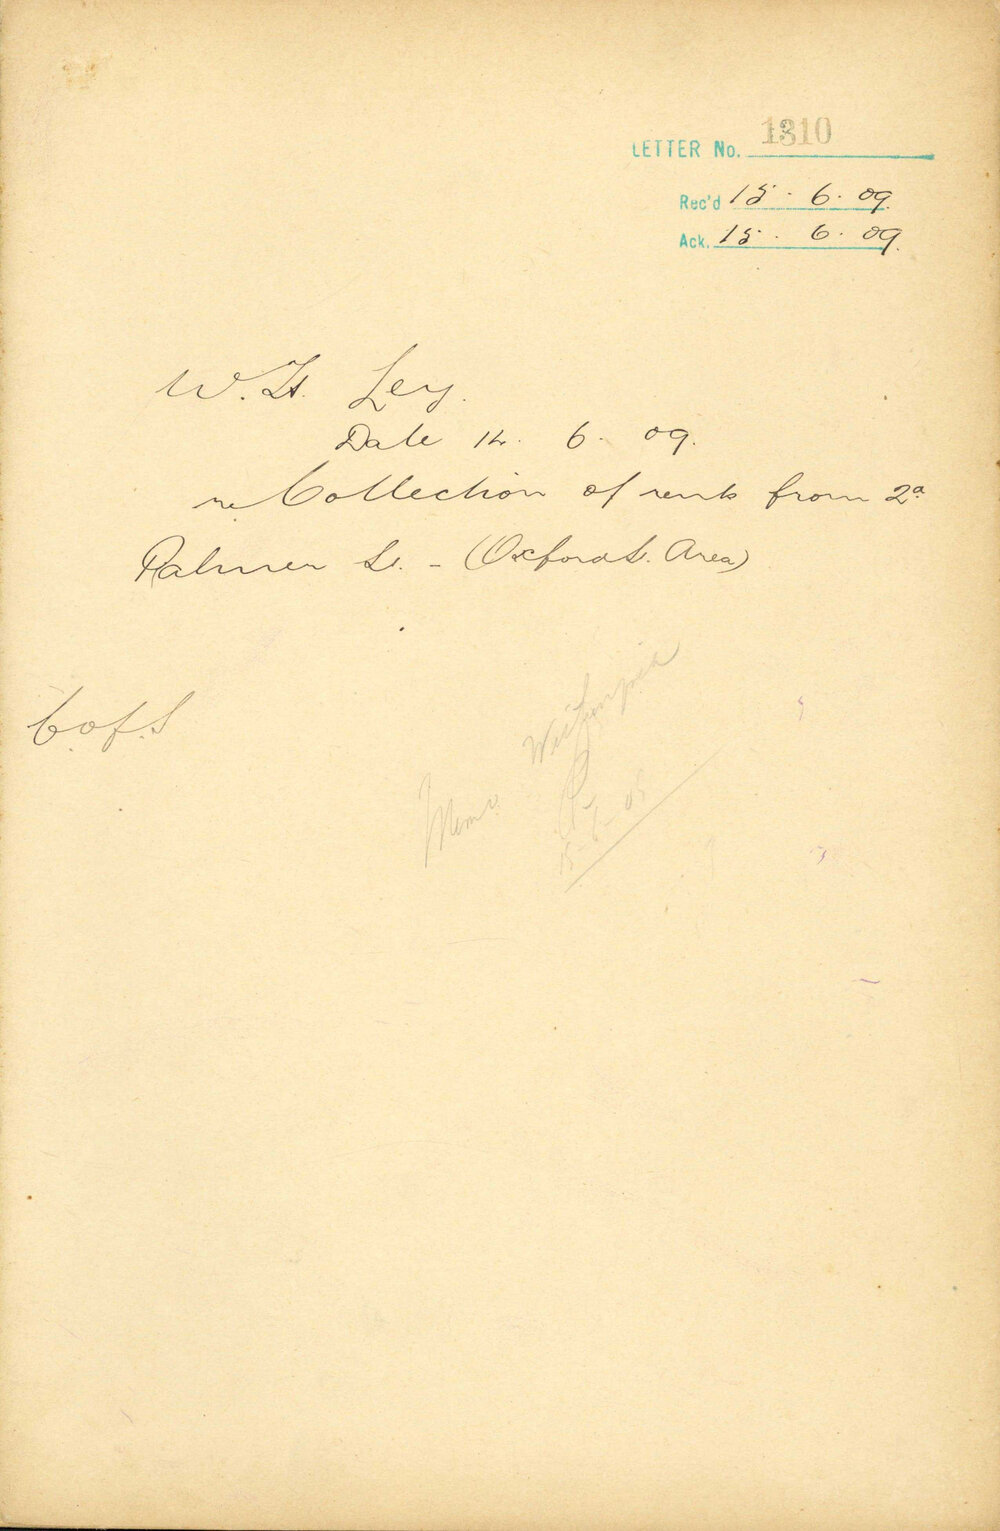 LETTER No. 1310
Rec'd 15. 6. 09.
Ack. 15. 6. 09.
W. H. Ley.
Date 14. 6. 09.
re Collection of rents from 2a
Palmer St. - (Oxford St. Area)
C. of. S
Memo.
15-6-09